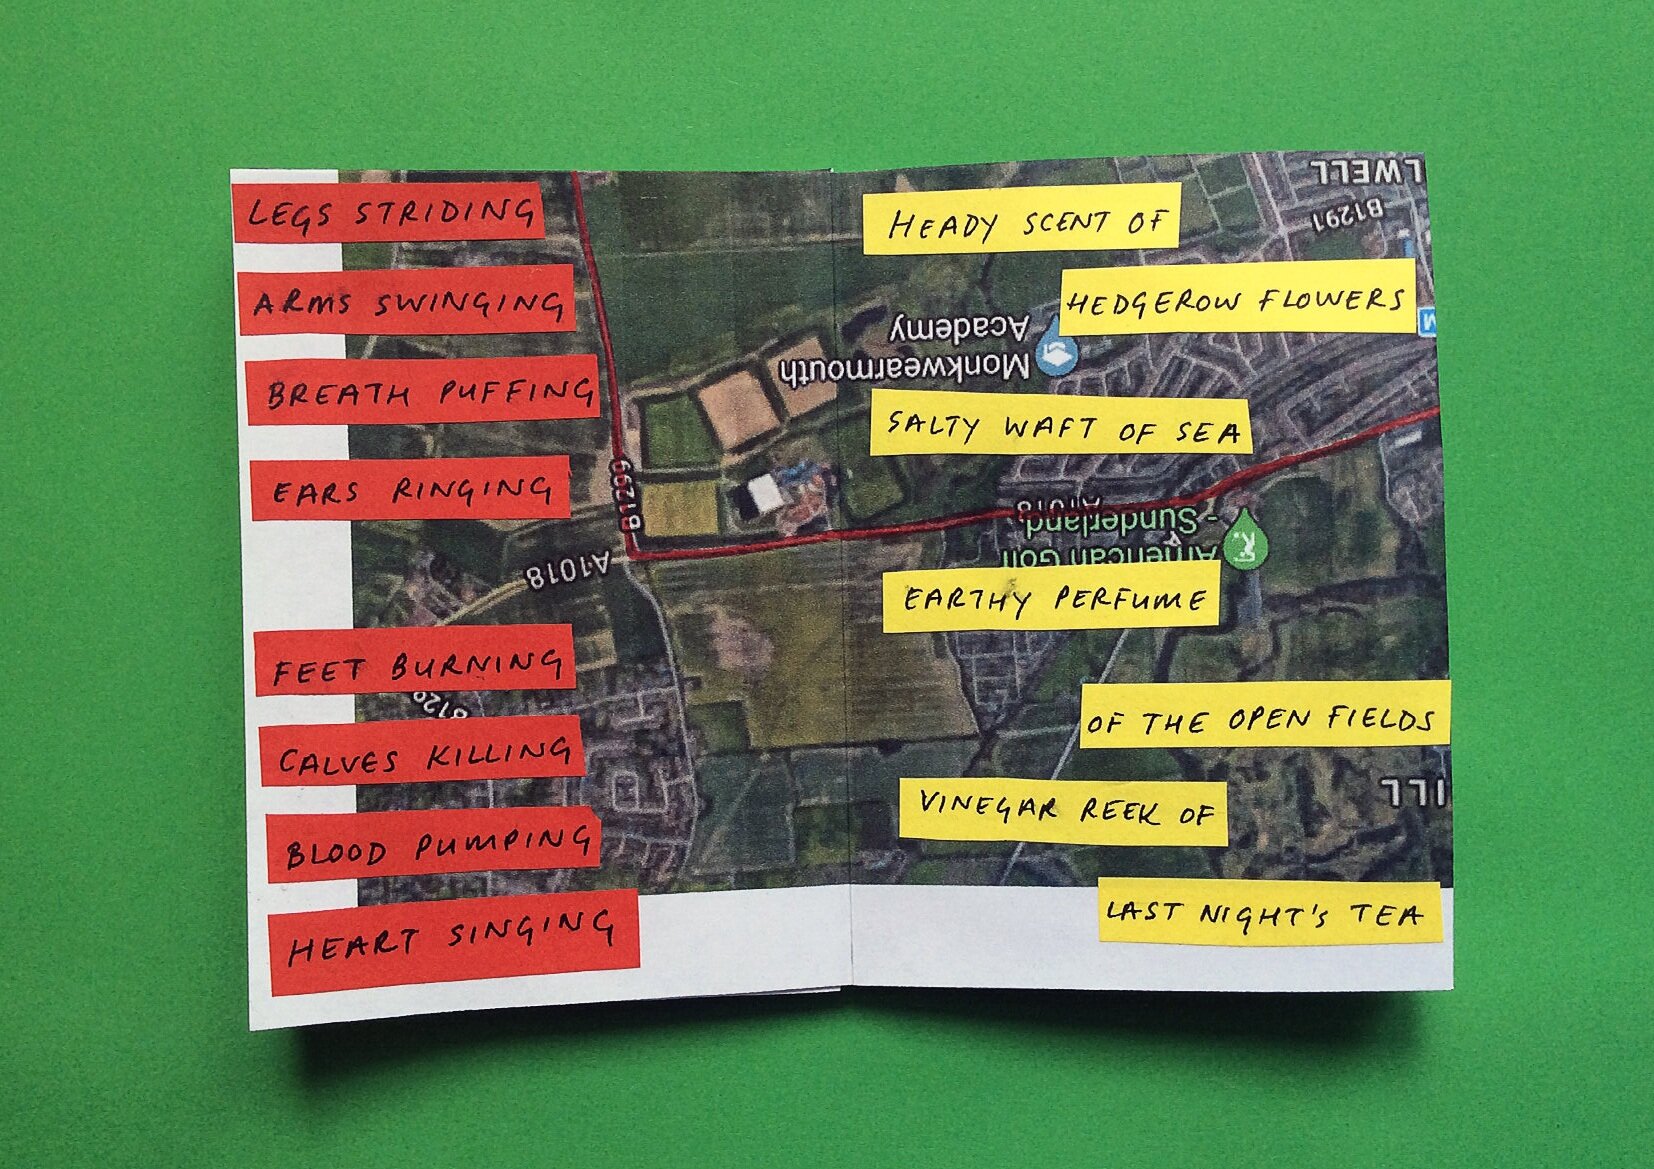 LEGS STRIDING
ARMS SWINGING
BREATH PUFFING
EARS RINGING
FEET BURNING
CALVES KILLING
BLOOD PUMPING
HEART SINGING
B1299
A1018
B129
HEADY SCENT OF
HEDGEROW FLOWERS
SALTY WAFT OF SEA
EARTHY PERFUME
OF THE OPEN FIELDS
VINEGAR REEK OF
LAST NIGHT'S TEA
LWELL
B1291
M
Monkwearmouth
Academy
A1018
American Golf
- Sunderland
ILL